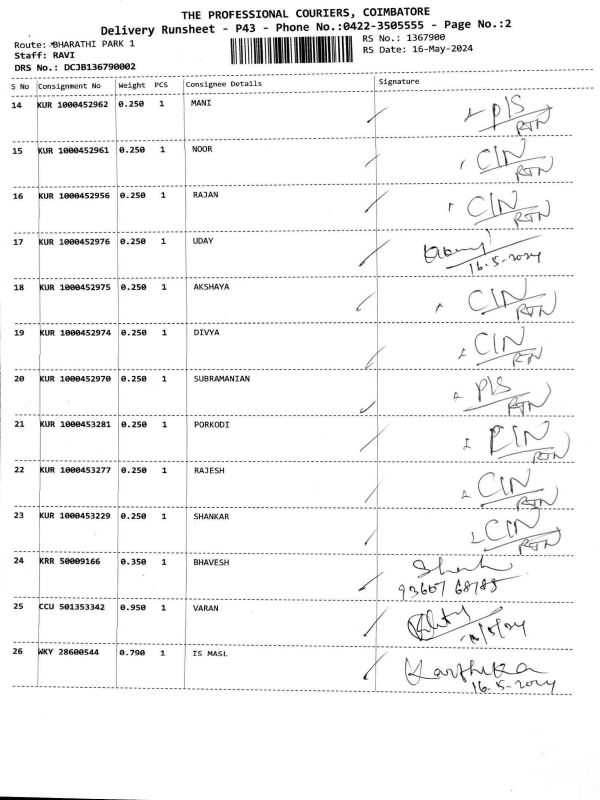 THE PROFESSIONAL COURIERS, COIMBATORE
Delivery Runsheet - P43 - Phone No.:0422-3505555 - Page No.:2
Route: BHARATHI PARK 1
RS No.: 1367900
Staff: RAVI
RS Date: 16-May-2024
DRS No.: DCJB136790002
S No Consignment No Weight PCS Consignee Details Signature
14 KUR 1000452962 0.250 1 MANI P/S
RTN
15 KUR 1000452961 0.250 1 NOOR C/N
RTN
16 KUR 1000452956 0.250 1 RAJAN C/N
RTN
17 KUR 1000452976 0.250 1 UDAY
16-5-2024
18 KUR 1000452975 0.250 1 AKSHAYA C/N
RTN
19 KUR 1000452974 0.250 1 DIVYA C/N
RTN
20 KUR 1000452970 0.250 1 SUBRAMANIAN P/S
RTN
21 KUR 1000453281 0.250 1 PORKODI P/N
RTN
22 KUR 1000453277 0.250 1 RAJESH C/N
RTN
23 KUR 1000453229 0.250 1 SHANKAR C/N
RTN
24 KRR 50009166 0.350 1 BHAVESH
93607 68785
25 CCU 501353342 0.950 1 VARAN
26 WKY 28600544 0.790 1 IS MASL Karthika
16-5-2024